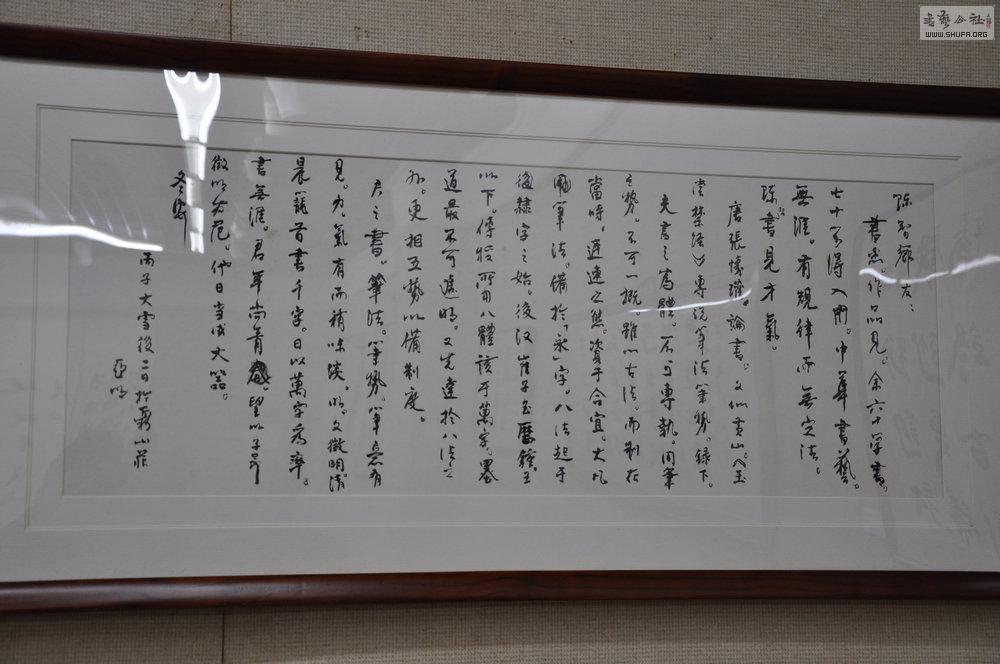 書悉。作品見。余六十学書。
七十方得入門。中華書藝。
無涯。有規律而無定法。
陈書見才氣。
唐張懷瓘。論書。
專說筆法筆勢。録下。
夫書之為體。不可專執。用筆
之勢。不可一概。雖心法古法。而制在
當時。遲速之態。資于合宜。大凡
筆法。備於「永」字。八法起于
隸字之始。後汉崔子玉歷鍾王
以下。傳授所用八體該于萬字。墨
道最不可遽明。又先達於八法之
外。更相五勢以備制度。
君之書。筆法。筆勢。筆意有
見。力。氣有而稍味淡。文徵明。清
晨。首書千字。日以萬字為率。
書無涯。君年尚青。望以子昂
徵明為範。他日当成大器。
冬安
丙子大雪後二日於
亞明
书艺公社
WWW.SHUFA.ORG